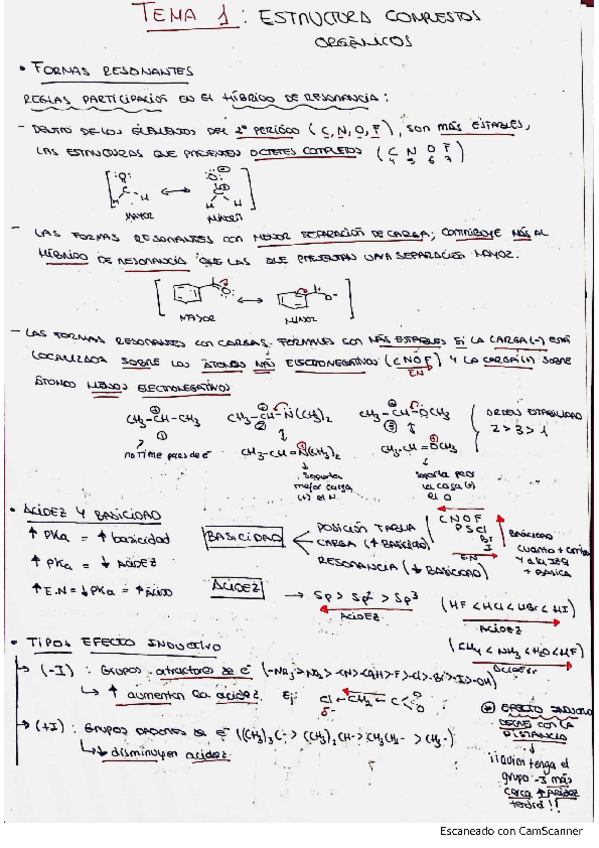 TEMA 1: ESTRUCTURA COMPUESTOS
ORGÁNICOS
• FORMAS RESONANTES
REGLAS PARTICIPACIÓN EN EL HÍBRIDO DE RESONANCIA:
- DENTRO DE LOS ELEMENTOS DEL 2º PERIÓDO (C, N, O, F), SON MÁS ESTABLES,
LAS ESTRUCTURAS QUE PRESENTEN OCTETES COMPLETOS (C N O F)
4 5 6 7
MAYOR MINORIT
- LAS FORMAS RESONANTES CON MENOR SEPARACIÓN DE CARGA, CONTRIBUYE MÁS AL
HÍBRIDO DE RESONANCIA QUE LAS QUE PRESENTAN UNA SEPARACIÓN MAYOR.
MAYOR MINOR
- LAS FORMAS RESONANTES CON CARGAS FORMALES SON MÁS ESTABLES SI LA CARGA (-) ESTÁ
LOCALIZADA SOBRE LOS ÁTOMOS MÁS ELECTRONEGATIVOS (CNOF) Y LA CARGA (+) SOBRE
EN
ÁTOMOS MENOS ELECTRONEGATIVOS
CH3-CH-CH3 CH3-CH-N(CH3)2 CH3-CH-OCH3 ORDEN ESTABILIDAD
2 > 3 > 1
no tiene pares de e-
CH3-CH=N(CH3)2 CH3-CH=OCH3
Soporta mejor carga (+) el N
soporta peor la carga (+) el O
• ACIDEZ Y BASICIDAD
↑ PKa = ↑ basicidad
↑ PKa = ↓ ACIDEZ
↑ E.N = ↓ PKa = ↑ ÁCIDO
BASICIDAD
POSICIÓN TABLA
CARGA (↑ BASICIDAD)
RESONANCIA (↓ BASICIDAD)
C N O F
P S Cl
Br
I
EN
BASICIDAD
+ BÁSICA
ACIDEZ
→ Sp > Sp2 > Sp3
ACIDEZ
(HF < HCl < HBr < HI)
ACIDEZ
(CH4 < NH3 < H2O < HF)
ACIDEZ
• TIPOS EFECTO INDUCTIVO
→ (-I): Grupos atractores de e-
↳ ↑ aumentan la acidez. Ej: Cl←CH2←C
δ-
→ (+I): Grupos dadores de e- ((CH3)3C- > (CH3)2CH- > CH3CH2- > CH3-)
↳ ↓ disminuyen acidez
* EFECTO INDUCTIVO
DECAE CON LA
DISTANCIA
¡¡quien tenga el
grupo -I más
cerca ↑ Acidez
tendrá!!
Escaneado con CamScanner